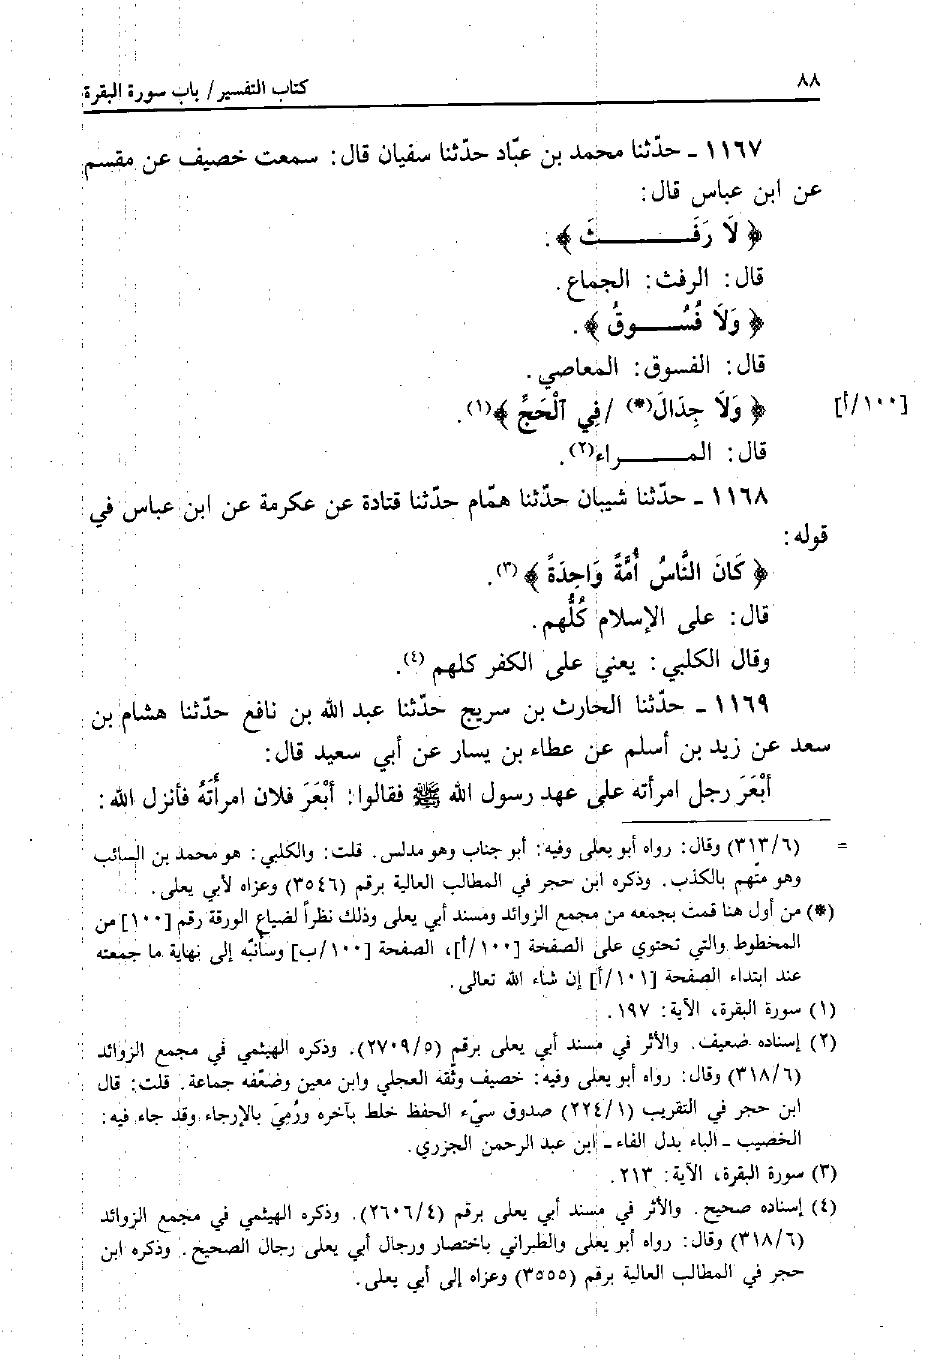 ٨٨
كتاب التفسير / باب سورة البقرة
١١٦٧ ـ حدّثنا محمد بن عبّاد حدّثنا سفيان قال: سمعت خصيف عن مقسم
عن ابن عباس قال:
﴿ لَا رَفَــــــثَ ﴾.
قال: الرفث: الجماع.
﴿ وَلَا فُسُــــوقُ ﴾.
قال: الفسوق: المعاصي.
﴿ وَلَا جِدَالَ(*) /فِي ٱلْحَجِّ ﴾(١).
[١٠٠/أ]
قال: المــــــراء(٢).
١١٦٨ ـ حدّثنا شيبان حدّثنا همّام حدّثنا قتادة عن عكرمة عن ابن عباس في
قوله:
﴿ كَانَ النَّاسُ أُمَّةً وَاحِدَةً ﴾(٣).
قال: على الإسلام كُلُّهم.
وقال الكلبي: يعني على الكفر كلهم(٤).
١١٦٩ ـ حدّثنا الحارث بن سريج حدّثنا عبد الله بن نافع حدّثنا هشام بن
سعد عن زيد بن أسلم عن عطاء بن يسار عن أبي سعيد قال:
أبْعَرَ رجل امرأته على عهد رسول الله ﷺ فقالوا: أبْعَرَ فلان امرأتَهُ فأنزل الله:
= (٣١٣/٦) وقال: رواه أبو يعلى وفيه: أبو جناب وهو مدلس. قلت: والكلبي: هو محمد بن السائب
وهو متّهم بالكذب. وذكره ابن حجر في المطالب العالية برقم (٣٥٤٦) وعزاه لأبي يعلى.
(*) من أول هنا قمت بجمعه من مجمع الزوائد ومسند أبي يعلى وذلك نظراً لضياع الورقة رقم [١٠٠] من
المخطوط والتي تحتوي على الصفحة [١٠٠/أ]، الصفحة [١٠٠/ب] وسأنبّه إلى نهاية ما جمعته
عند ابتداء الصفحة [١٠١/أ] إن شاء الله تعالى.
(١) سورة البقرة، الآية: ١٩٧.
(٢) إسناده ضعيف. والأثر في مسند أبي يعلى برقم (٢٧٠٩/٥). وذكره الهيثمي في مجمع الزوائد
(٣١٨/٦) وقال: رواه أبو يعلى وفيه: خصيف وثّقه العجلي وابن معين وضعّفه جماعة. قلت: قال
ابن حجر في التقريب (٢٢٤/١) صدوق سيّء الحفظ خلط بآخره ورُمِيَ بالإرجاء وقد جاء فيه:
الخصيب ـ الباء بدل الفاء ـ ابن عبد الرحمن الجزري.
(٣) سورة البقرة، الآية: ٢١٣.
(٤) إسناده صحيح. والأثر في مسند أبي يعلى برقم (٢٦٠٦/٤). وذكره الهيثمي في مجمع الزوائد
(٣١٨/٦) وقال: رواه أبو يعلى والطبراني باختصار ورجال أبي يعلى رجال الصحيح. وذكره ابن
حجر في المطالب العالية برقم (٣٥٥٥) وعزاه إلى أبي يعلى.